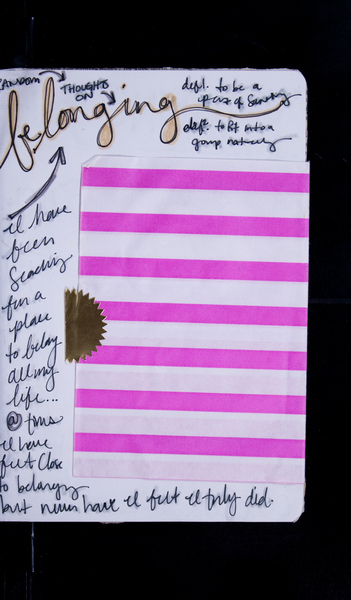 RANDOM
THOUGHTS
ON
belonging
def1. to be a
part of something
def2. to fit into a
group naturally
I have
been
Seaching
for a
place
to belong
all my
life...
@ times
I have
felt Close
to belonging
but never have I felt I truly did.